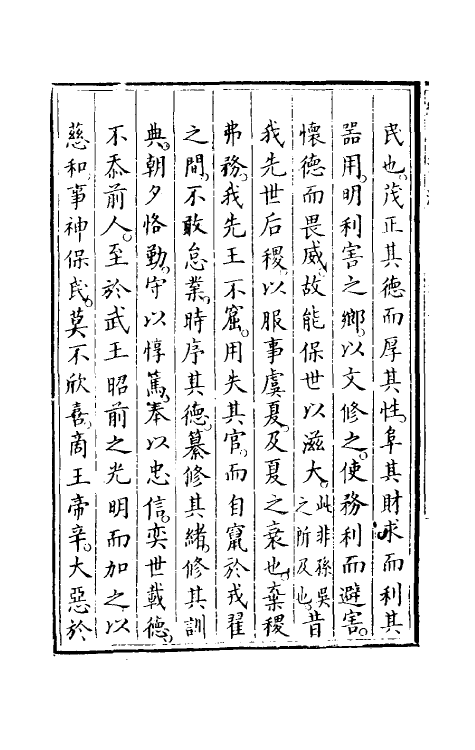 民也。茂正其德而厚其性。阜其財求而利其
器用。明利害之鄉。以文修之。使務利而避害。
懷德而畏威。故能保世以滋大。此非孫吳之所及也。昔
我先世后稷。以服事虞夏。及夏之衰也。棄稷
弗務。我先王不窋。用失其官。而自竄於戎翟
之間。不敢怠業。時序其德。纂修其緒。修其訓
典。朝夕恪勤。守以惇篤。奉以忠信。奕世載德。
不忝前人。至於武王昭前之光明而加之以
慈和。事神保民。莫不欣喜。商王帝辛。大惡於